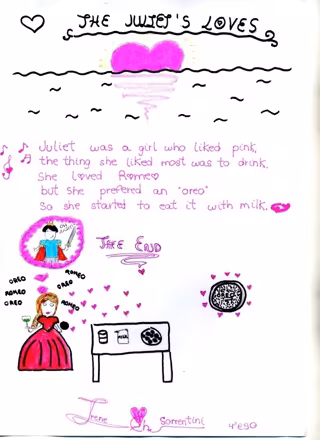 THE JULIET'S LOVES
Juliet was a girl who liked pink,
the thing she liked most was to drink.
She loved Romeo
but she prefered an "oreo"
So she started to eat it with milk.
THE END
OREO ROMEO
ROMEO OREO
OREO ROMEO
OREO
MILK
Irene Sorrentini 4°ESO